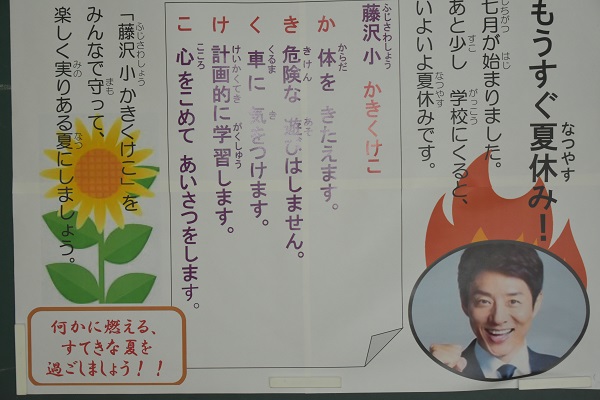 もうすぐ夏休み！
七月が始まりました。
あと少し 学校にくると、
いよいよ夏休みです。
藤沢小 かきくけこ
か 体を きたえます。
き 危険な 遊びはしません。
く 車に 気をつけます。
け 計画的に学習します。
こ 心をこめて あいさつをします。
「藤沢 小 かきくけこ」を
みんなで守って、
楽しく実りある夏にしましょう。
何かに燃える、
すてきな夏を
過ごしましょう！！